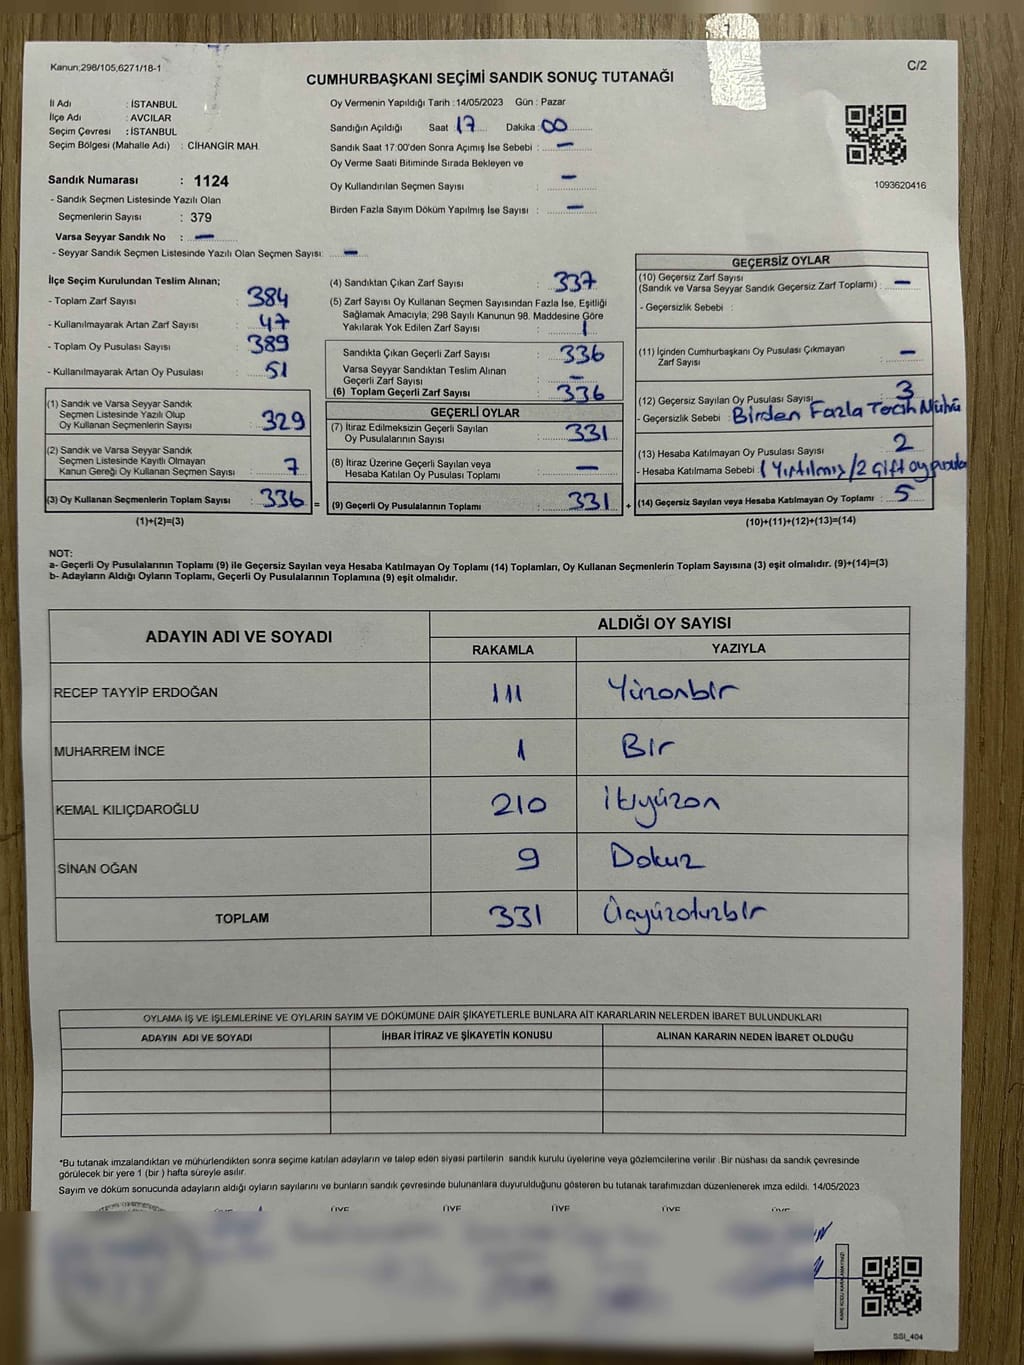 Kanun;298/105,6271/18-1
C/2
CUMHURBAŞKANI SEÇİMİ SANDIK SONUÇ TUTANAĞI
İl Adı : İSTANBUL
İlçe Adı : AVCILAR
Seçim Çevresi : İSTANBUL
Seçim Bölgesi (Mahalle Adı) : CİHANGİR MAH.
Sandık Numarası : 1124
- Sandık Seçmen Listesinde Yazılı Olan
Seçmenlerin Sayısı : 379
Varsa Seyyar Sandık No : —
- Seyyar Sandık Seçmen Listesinde Yazılı Olan Seçmen Sayısı: —
Oy Vermenin Yapıldığı Tarih : 14/05/2023 Gün : Pazar
Sandığın Açıldığı Saat 17 Dakika : 00
Sandık Saat 17:00'den Sonra Açımış İse Sebebi : —
Oy Verme Saati Bitiminde Sırada Bekleyen ve
Oy Kullandırılan Seçmen Sayısı : —
Birden Fazla Sayım Döküm Yapılmış İse Sayısı : —
1093620416
İlçe Seçim Kurulundan Teslim Alınan;
- Toplam Zarf Sayısı : 384
- Kullanılmayarak Artan Zarf Sayısı : 47
- Toplam Oy Pusulası Sayısı : 389
- Kullanılmayarak Artan Oy Pusulası : 51
(1) Sandık ve Varsa Seyyar Sandık
Seçmen Listesinde Yazılı Olup
Oy Kullanan Seçmenlerin Sayısı : 329
(2) Sandık ve Varsa Seyyar Sandık
Seçmen Listesinde Kayıtlı Olmayan
Kanun Gereği Oy Kullanan Seçmen Sayısı : 7
(3) Oy Kullanan Seçmenlerin Toplam Sayısı : 336 =
(1)+(2)=(3)
(4) Sandıktan Çıkan Zarf Sayısı : 337
(5) Zarf Sayısı Oy Kullanan Seçmen Sayısından Fazla İse, Eşitliği
Sağlamak Amacıyla; 298 Sayılı Kanunun 98. Maddesine Göre
Yakılarak Yok Edilen Zarf Sayısı : 1
Sandıkta Çıkan Geçerli Zarf Sayısı : 336
Varsa Seyyar Sandıktan Teslim Alınan
Geçerli Zarf Sayısı : —
(6) Toplam Geçerli Zarf Sayısı : 336
GEÇERLİ OYLAR
(7) İtiraz Edilmeksizin Geçerli Sayılan
Oy Pusulalarının Sayısı : 331
(8) İtiraz Üzerine Geçerli Sayılan veya
Hesaba Katılan Oy Pusulası Toplamı : —
(9) Geçerli Oy Pusulalarının Toplamı : 331 +
GEÇERSİZ OYLAR
(10) Geçersiz Zarf Sayısı
(Sandık ve Varsa Seyyar Sandık Geçersiz Zarf Toplamı) : —
- Geçersizlik Sebebi :
(11) İçinden Cumhurbaşkanı Oy Pusulası Çıkmayan
Zarf Sayısı : —
(12) Geçersiz Sayılan Oy Pusulası Sayısı : 3
- Geçersizlik Sebebi : Birden Fazla Tercih Mührü
(13) Hesaba Katılmayan Oy Pusulası Sayısı : 2
- Hesaba Katılmama Sebebi : 1 Yırtılmış/2 Çift oy pusula
(14) Geçersiz Sayılan veya Hesaba Katılmayan Oy Toplamı : 5
(10)+(11)+(12)+(13)=(14)
NOT:
a- Geçerli Oy Pusulalarının Toplamı (9) ile Geçersiz Sayılan veya Hesaba Katılmayan Oy Toplamı (14) Toplamları, Oy Kullanan Seçmenlerin Toplam Sayısına (3) eşit olmalıdır. (9)+(14)=(3)
b- Adayların Aldığı Oyların Toplamı, Geçerli Oy Pusulalarının Toplamına (9) eşit olmalıdır.
ADAYIN ADI VE SOYADI ALDIĞI OY SAYISI
RAKAMLA YAZIYLA
RECEP TAYYİP ERDOĞAN 111 Yüzonbir
MUHARREM İNCE 1 Bir
KEMAL KILIÇDAROĞLU 210 İkiyüzon
SİNAN OĞAN 9 Dokuz
TOPLAM 331 Üçyüzotuzbir
OYLAMA İŞ VE İŞLEMLERİNE VE OYLARIN SAYIM VE DÖKÜMÜNE DAİR ŞİKAYETLERLE BUNLARA AİT KARARLARIN NELERDEN İBARET BULUNDUKLARI
ADAYIN ADI VE SOYADI İHBAR İTİRAZ VE ŞİKAYETİN KONUSU ALINAN KARARIN NEDEN İBARET OLDUĞU
*Bu tutanak imzalandıktan ve mühürlendikten sonra seçime katılan adayların ve talep eden siyasi partilerin sandık kurulu üyelerine veya gözlemcilerine verilir .Bir nüshası da sandık çevresinde
görülecek bir yere 1 (bir ) hafta süreyle asılır.
Sayım ve döküm sonucunda adayların aldığı oyların sayılarını ve bunların sandık çevresinde bulunanlara duyurulduğunu gösteren bu tutanak tarafımızdan düzenlenerek imza edildi. 14/05/2023
ÜYE ÜYE ÜYE ÜYE ÜYE
SSI_404